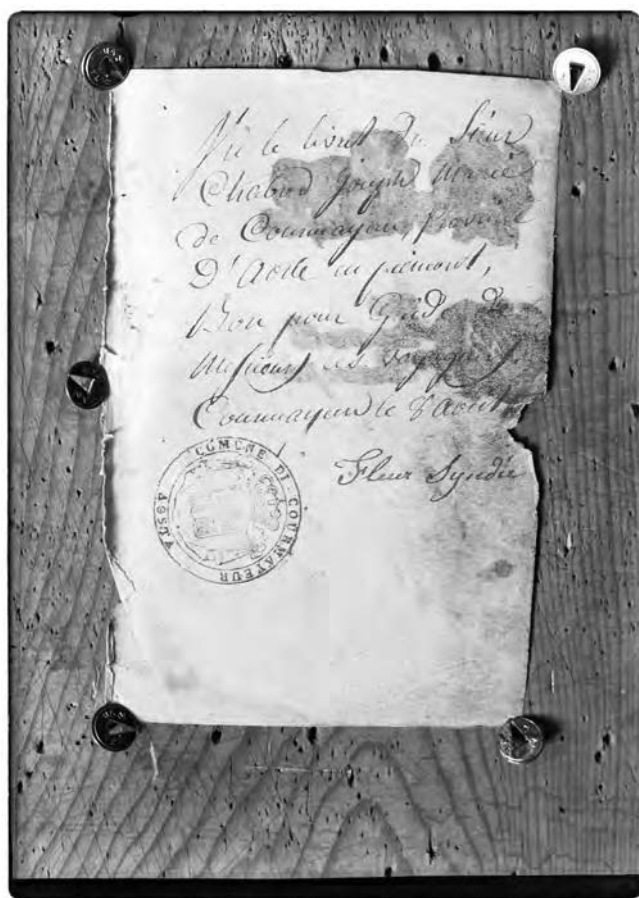 Vu le livret du Sieur
Chabod Joseph Marie
de Courmayeur, Province
D'Aoste en piémont,
Bon pour Guide de
Messieurs les voyageurs.
Courmayeur le 8 Aout
Fleur Syndic
COMUNE DI COURMAYEUR
AOSTA